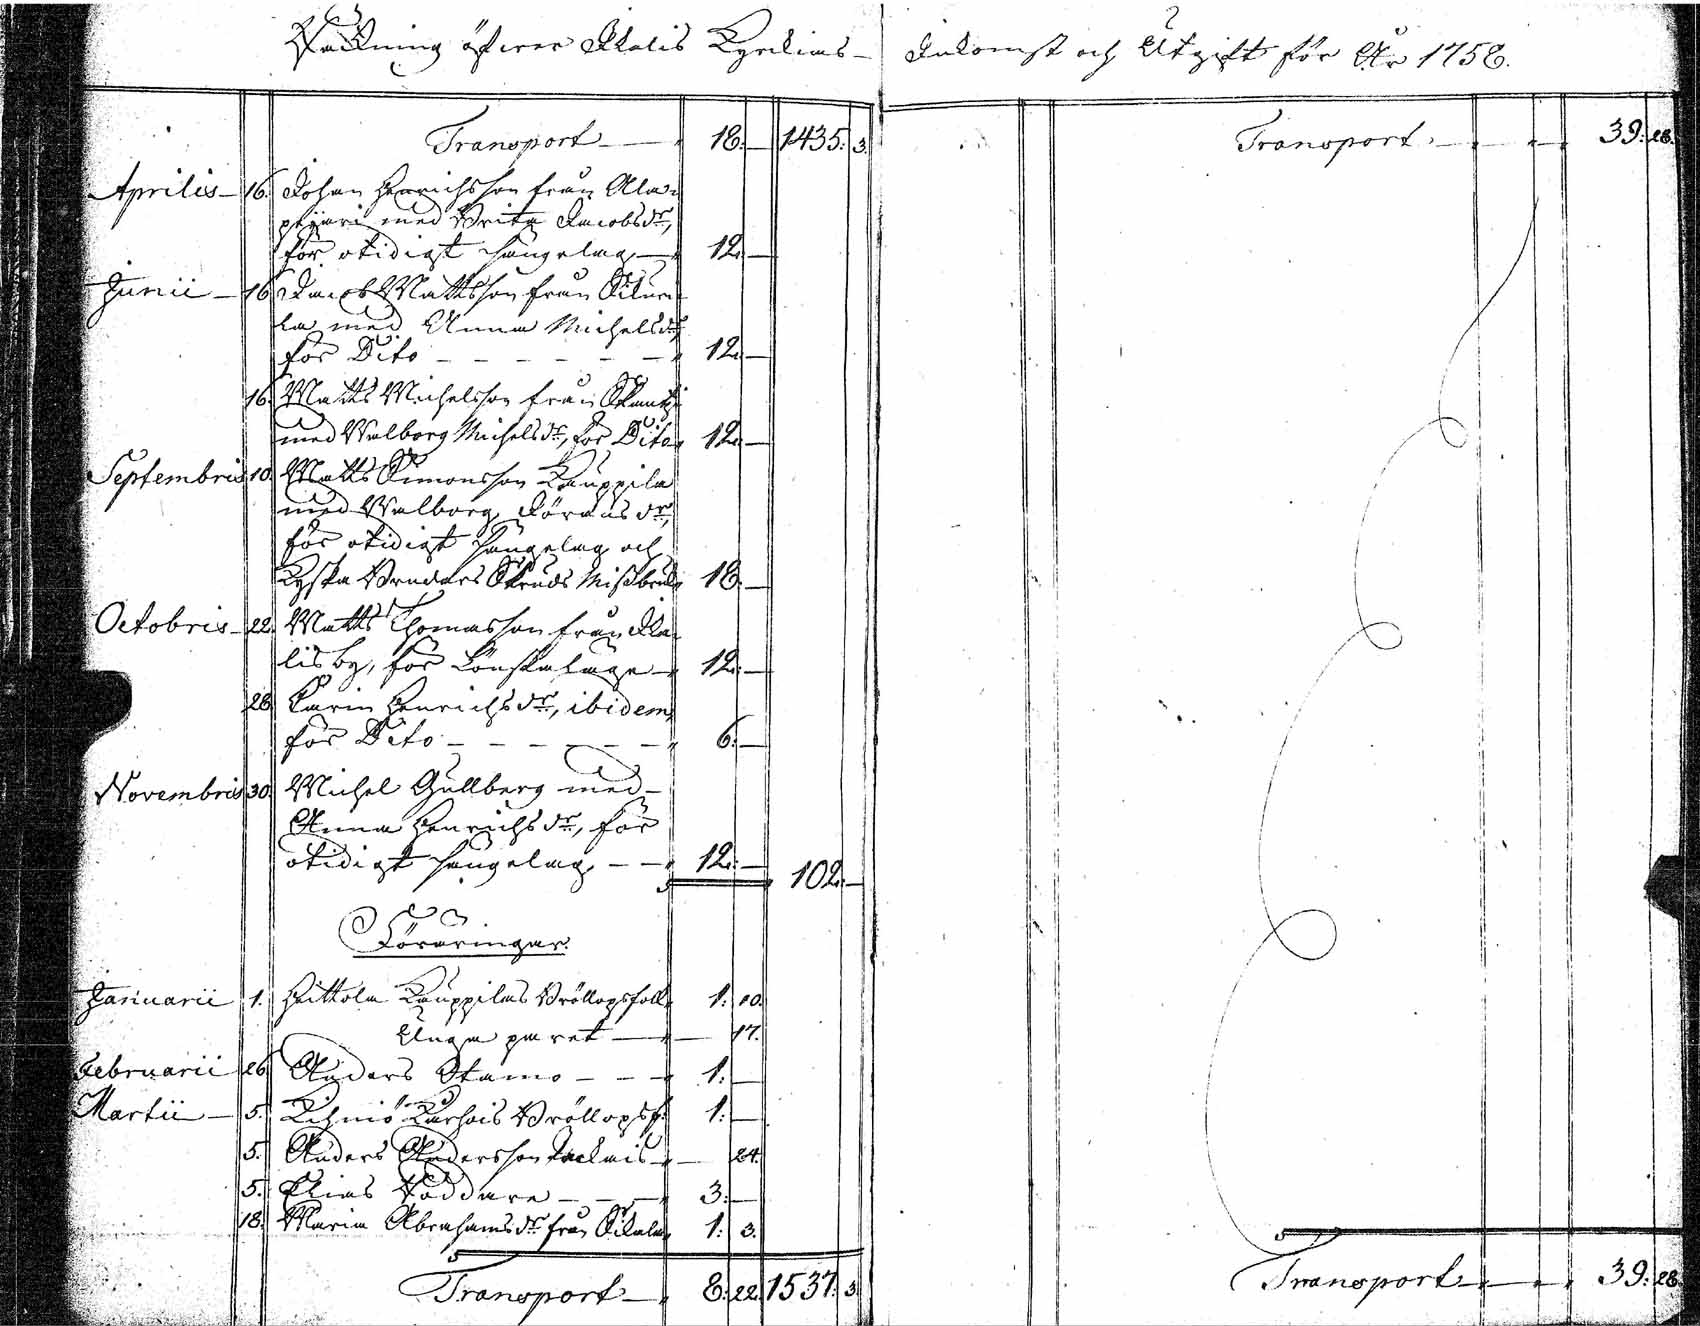 Räkning öfwer Ikalis Kyrckias Inkomst och Utgift för År 1758.
Transport 18. — 1435. 3.
Aprilis 16. Johan Henrichsson från Ala-
med Brita Jacobs dr,
för otidigt sängelag 12. —
Junii 16. Jacob Mattsson från Sikuri-
la med Anna Michels dr,
för Dito 12. —
16. Matts Michelsson från
med Walborg Michels dr, för Dito 12. —
Septembris 10. Matts Simonsson Kauppila
med Walborg Jörans dr,
för otidigt sängelag och
Kyska Bruders Skruds Missbruk 18. —
Octobris 22. Matts Thomasson från Ika-
lis by, för Lönskaläge 12. —
28. Carin Henrichs dr, ibidem,
för Dito 6. —
Novembris 30. Michel Gullberg med
Anna Henrichs dr, för
otidigt sängelag 12. — 102. —
Föräringar.
Januarii 1. Hittola Kauppilas Bröllopsfolk 1. 10.
Unga paret — 17.
Februarii 26. Anders Stamo 1. —
Martii 5. Kihniö Karhois Bröllopsf. 1. —
5. Anders Andersson — 24.
5. Elias Boddare 3. —
18. Maria Abrahams dr från 1. 3.
Transport 8. 22. 1537. 3.
Transport 39. 28.
Transport 39. 28.